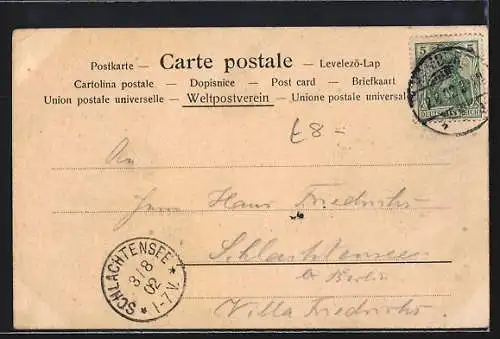 Postkarte — Carte postale — Levelező-Lap
Cartolina postale — Dopisnice — Post card — Briefkaart
Union postale universelle — Weltpostverein — Unione postale universale
5 5
DEUTSCHES REICH
£8 =
An
Herrn Hans Friedrichs
Schlachtensee
b Berlin
Villa Friedrichs
SCHLACHTENSEE
8/8
02
* 1-7 V. *